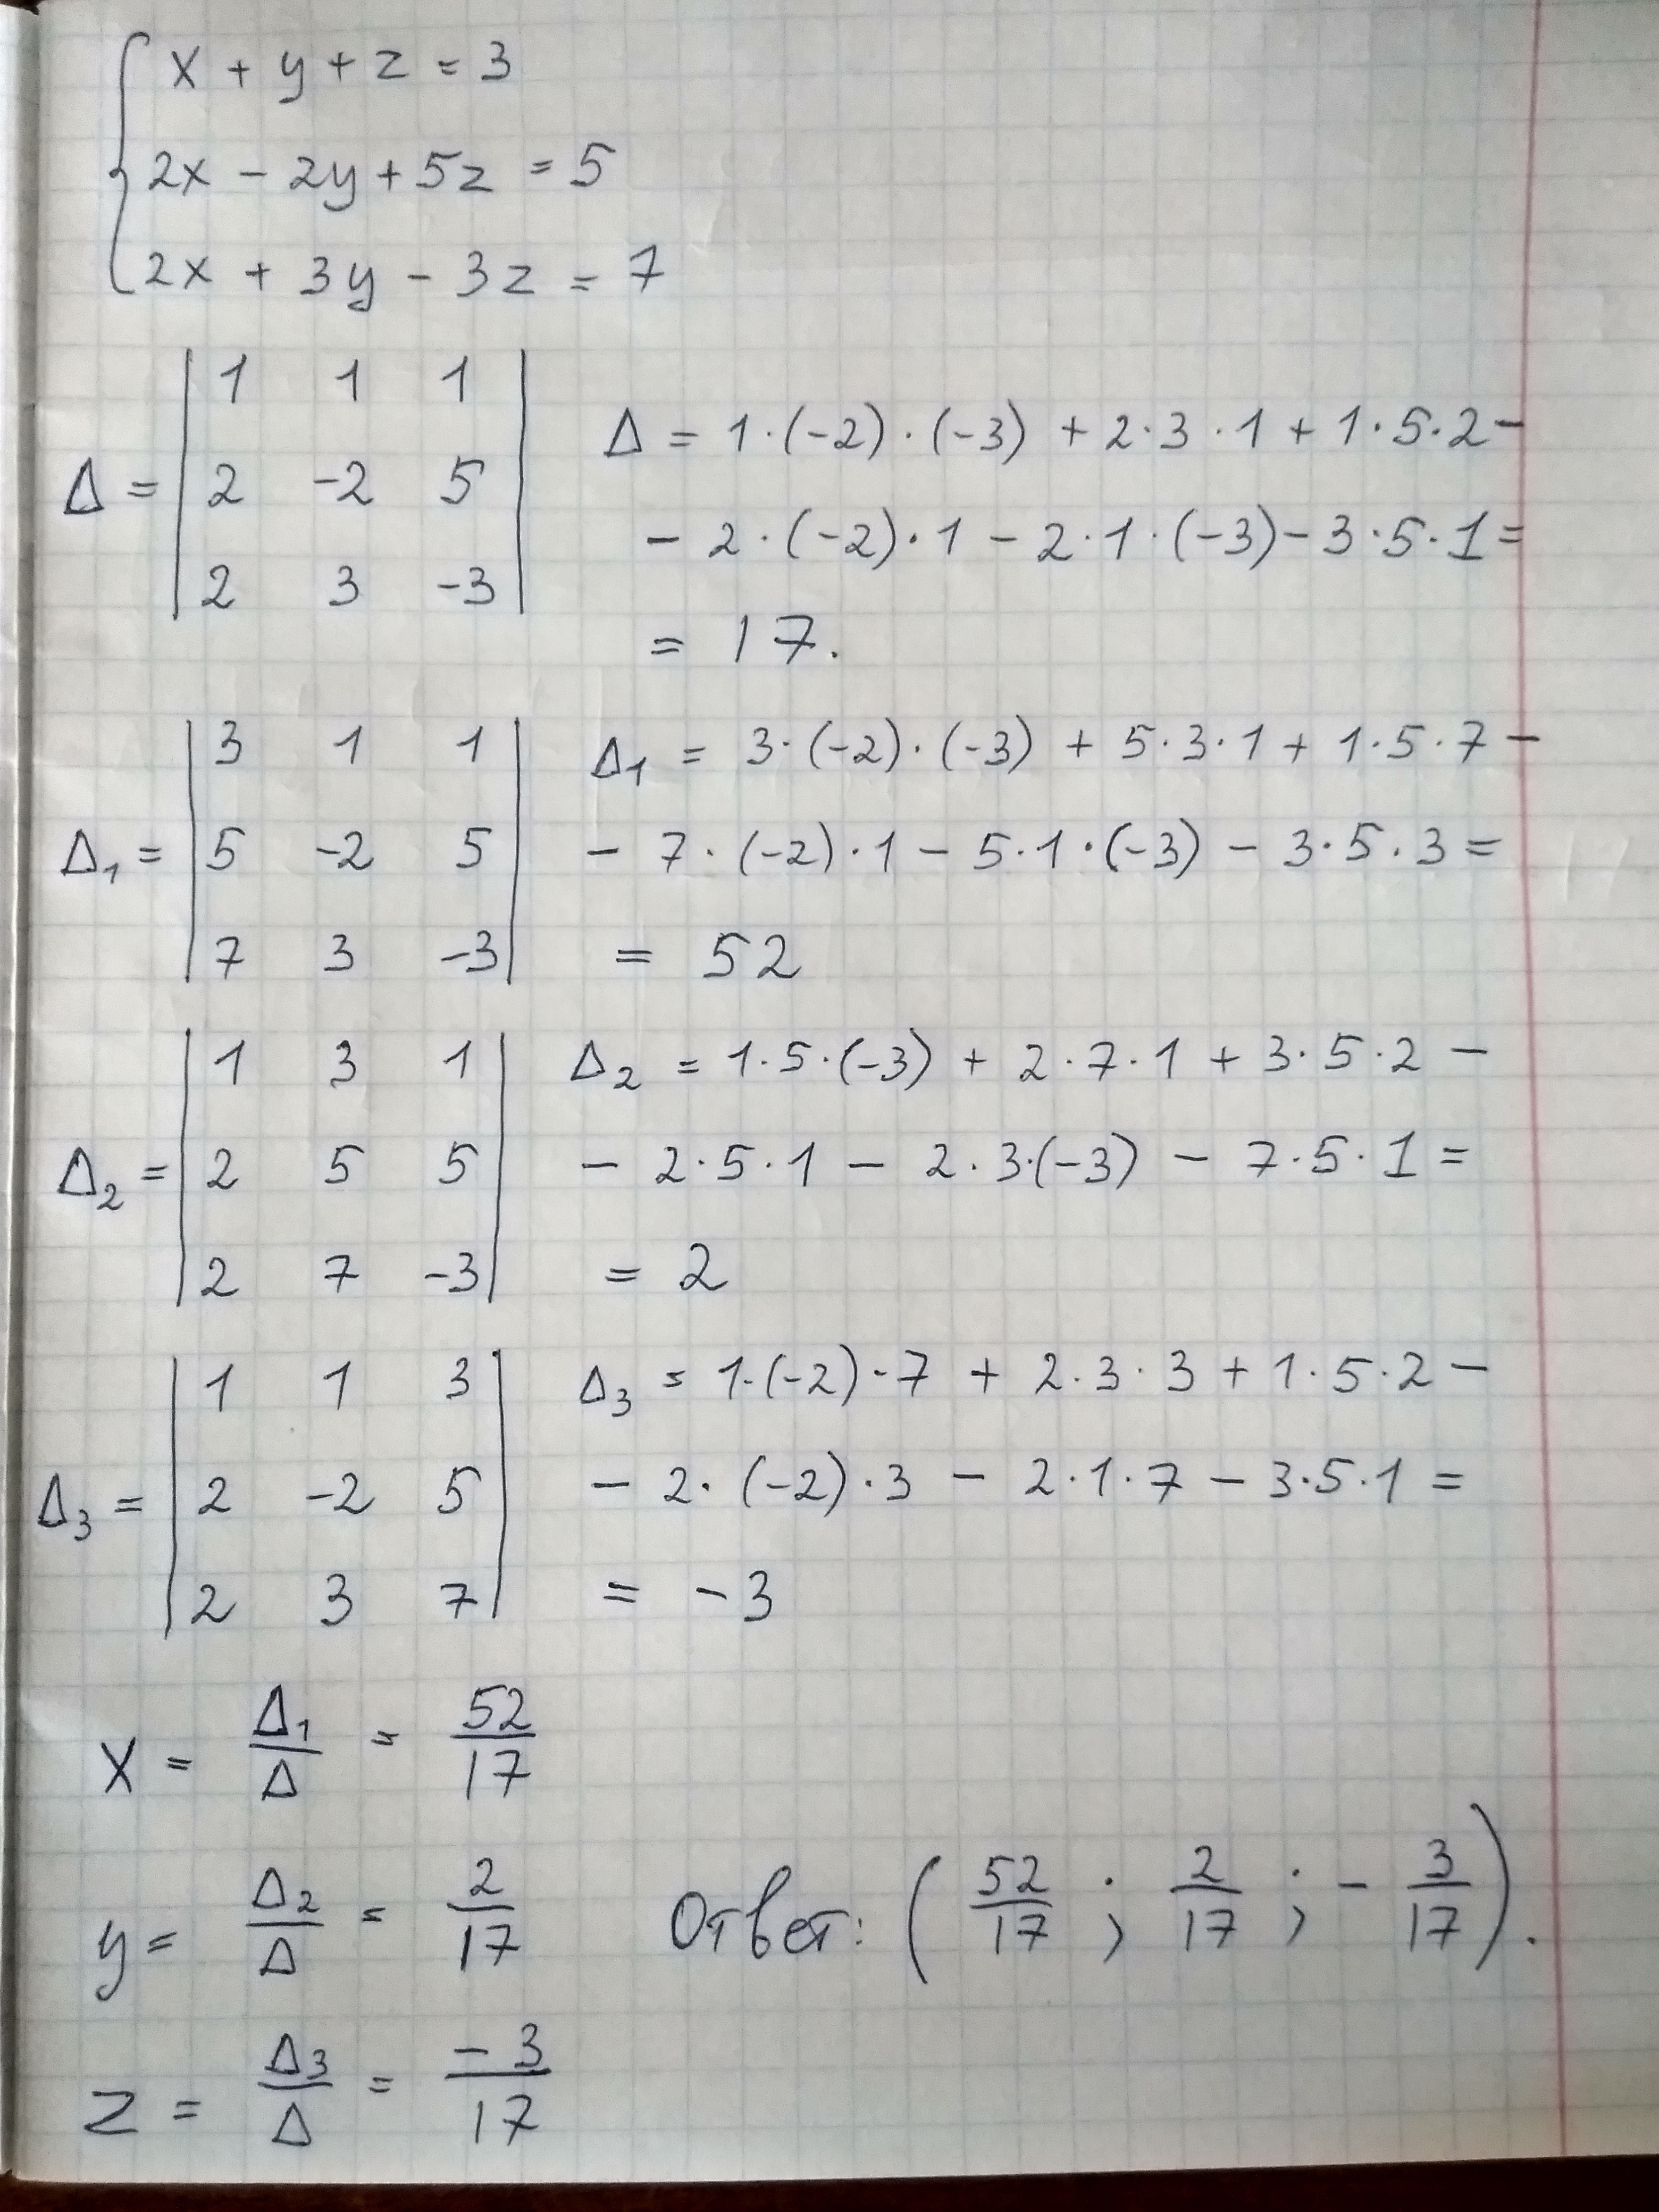 x + y + z = 3
2x - 2y + 5z = 5
2x + 3y - 3z = 7
Δ = | 1 1 1 |
| 2 -2 5 |
| 2 3 -3 |
Δ = 1·(-2)·(-3) + 2·3·1 + 1·5·2 -
- 2·(-2)·1 - 2·1·(-3) - 3·5·1 =
= 17.
Δ₁ = | 3 1 1 |
| 5 -2 5 |
| 7 3 -3 |
Δ₁ = 3·(-2)·(-3) + 5·3·1 + 1·5·7 -
- 7·(-2)·1 - 5·1·(-3) - 3·5·3 =
= 52
Δ₂ = | 1 3 1 |
| 2 5 5 |
| 2 7 -3 |
Δ₂ = 1·5·(-3) + 2·7·1 + 3·5·2 -
- 2·5·1 - 2·3·(-3) - 7·5·1 =
= 2
Δ₃ = | 1 1 3 |
| 2 -2 5 |
| 2 3 7 |
Δ₃ = 1·(-2)·7 + 2·3·3 + 1·5·2 -
- 2·(-2)·3 - 2·1·7 - 3·5·1 =
= -3
x = Δ₁/Δ = 52/17
y = Δ₂/Δ = 2/17
z = Δ₃/Δ = -3/17
Ответ: (52/17; 2/17; -3/17).